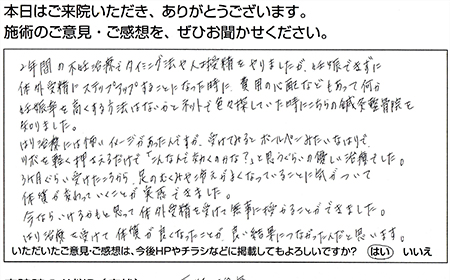 本日はご来院いただき、ありがとうございます。
施術のご意見・ご感想を、ぜひお聞かせください。
2年間の不妊治療でタイミング法や人工授精をやりましたが、妊娠できずに
体外受精にステップアップすることになった時に、費用の心配などもあって何か
妊娠率を高くする方法はないかとネットで色々探していた時にこちらの鍼灸整骨院を
知りました。
はり治療には怖いイメージがあったんですが、受けてみるとボールペンみたいなはりで、
ツボを軽く押さえるだけで「こんなんで効くのかな?」と思うぐらいの優しい治療でした。
3ヶ月ぐらい受けたころから、足のむくみや冷えがよくなっていることに気がついて
体質が変わっていくことが実感できました。
今ならいけるかもと思って体外受精を受けて無事に授かることができました。
はり治療を受けて体質が良くなったことが、良い結果につながったんだと思います。
いただいたご意見・ご感想は、今後HPやチラシなどに掲載してもよろしいですか? はい いいえ